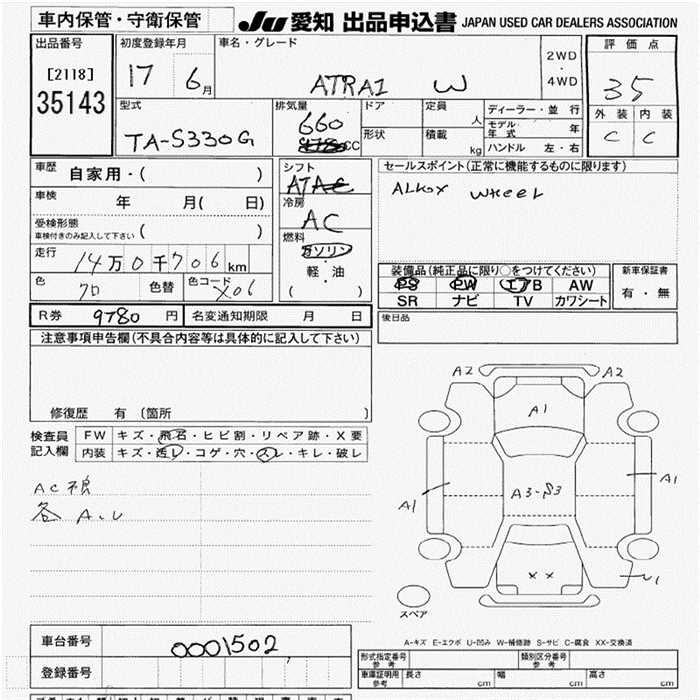 車内保管・守衛保管
JU 愛知 出品申込書 JAPAN USED CAR DEALERS ASSOCIATION
出品番号
[2118]
35143
初度登録年月
17 6月
車名・グレード
ATRAI W
2WD
・
4WD
評価点
35
外装 内装
C C
型式
TA-S330G
排気量
660
CC
ドア
形状
定員 人
積載 kg
ディーラー・並行
モデル年式 年
ハンドル 左・右
車歴
自家用・( )
車検
年 月( 日)
受検形態
車検付きのみ記入して下さい ( )
走行
14万0千706km
色 色替 色コード
クロ X06
シフト
AT
冷房
AC
燃料
ガソリン
・
軽・油
( )
セールスポイント(正常に機能するものに限ります)
ALKOX WHEEL
装備品(純正品に限り○をつけてください)
PS PW エアB AW
SR ナビ TV カワシート
新車保証書
有・無
後日品
R券 9780円 名変通知期限 月 日
注意事項申告欄(不具合内容等は具体的に記入して下さい)
修復歴 有 〔箇所 〕
検査員
記入欄
FW キズ・飛石・ヒビ割・リペア跡・X要
内装 キズ・汚レ・コゲ・穴・スレ・キレ・破レ
各 A.U
A2 A2
A1
A1 A3-S3 A1
X X
スペア
A-キズ E-エクボ U-凹み W-補修跡 S-サビ C-腐食 XX-交換済
車台番号
0001502
登録番号
型式指定番号
参考
類別区分番号
参考
車庫証明用
参考
長さ cm 幅 cm 高さ cm